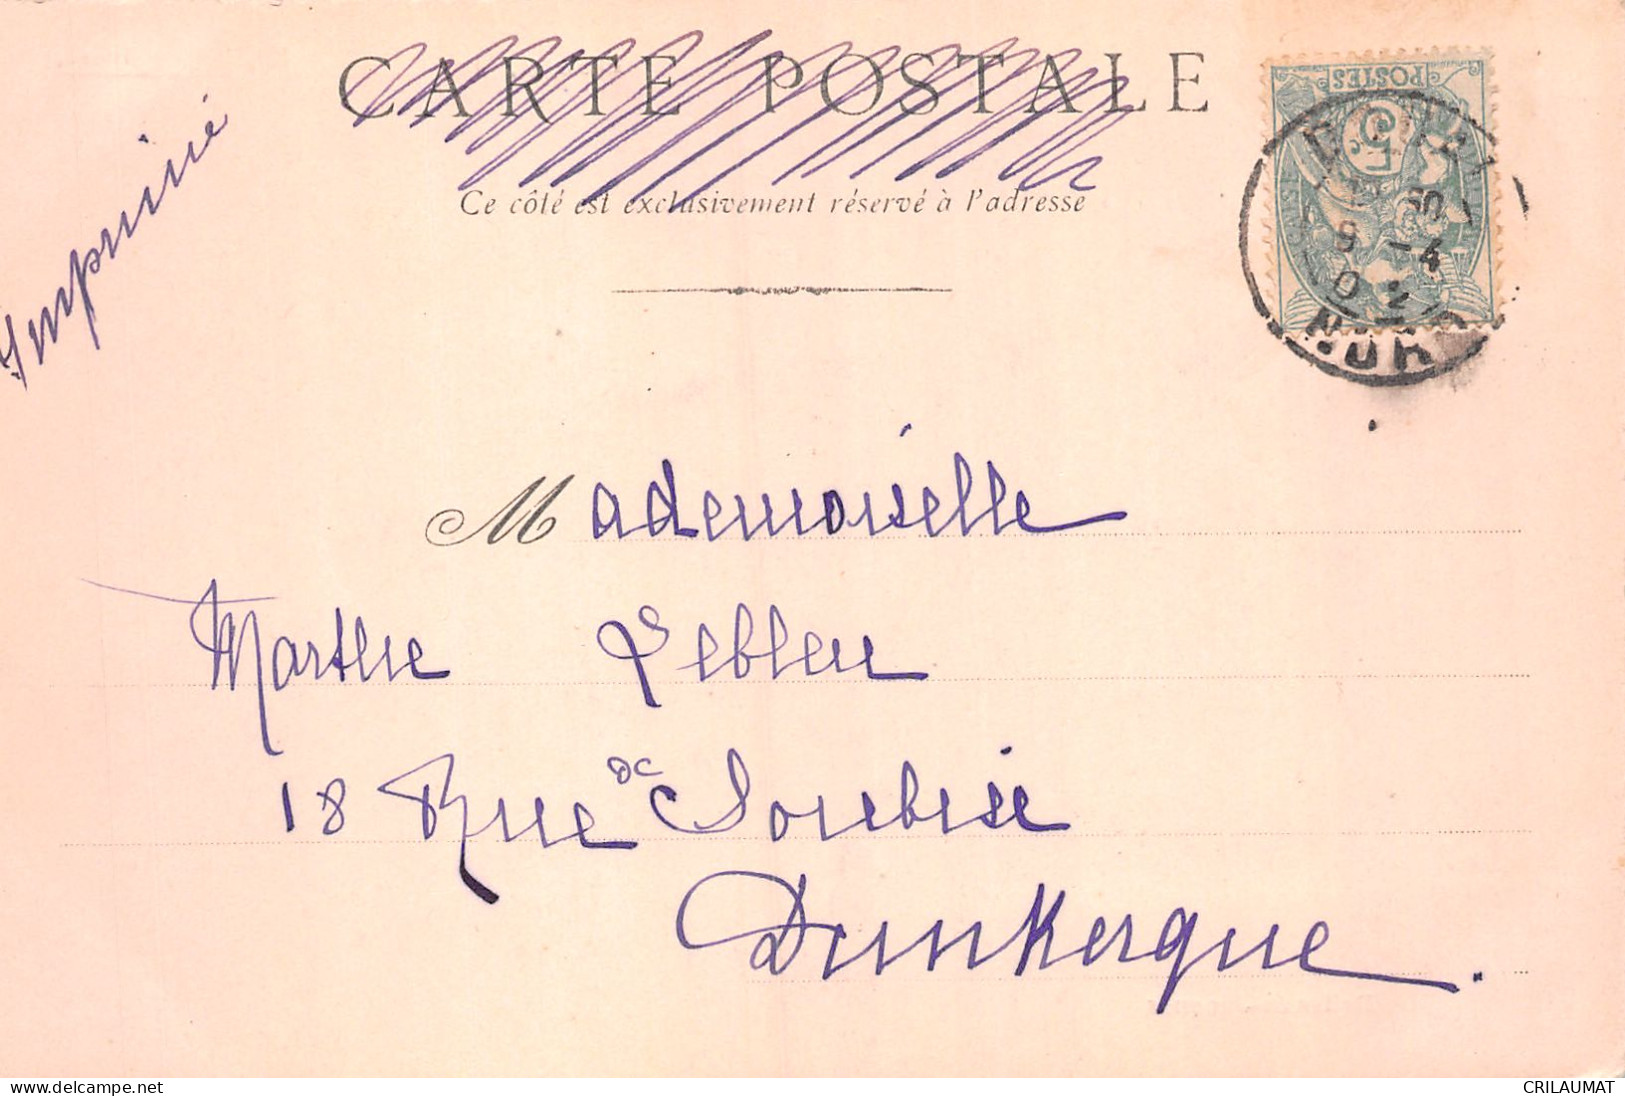 CARTE POSTALE
Ce côté est exclusivement réservé à l'adresse
Imprimé
POSTES
5c
9 -4
02
NOR
Mademoiselle
Marthe Lebleu
18 Rue de Soubise
Dunkerque.
www.delcampe.net
CRILAUMAT